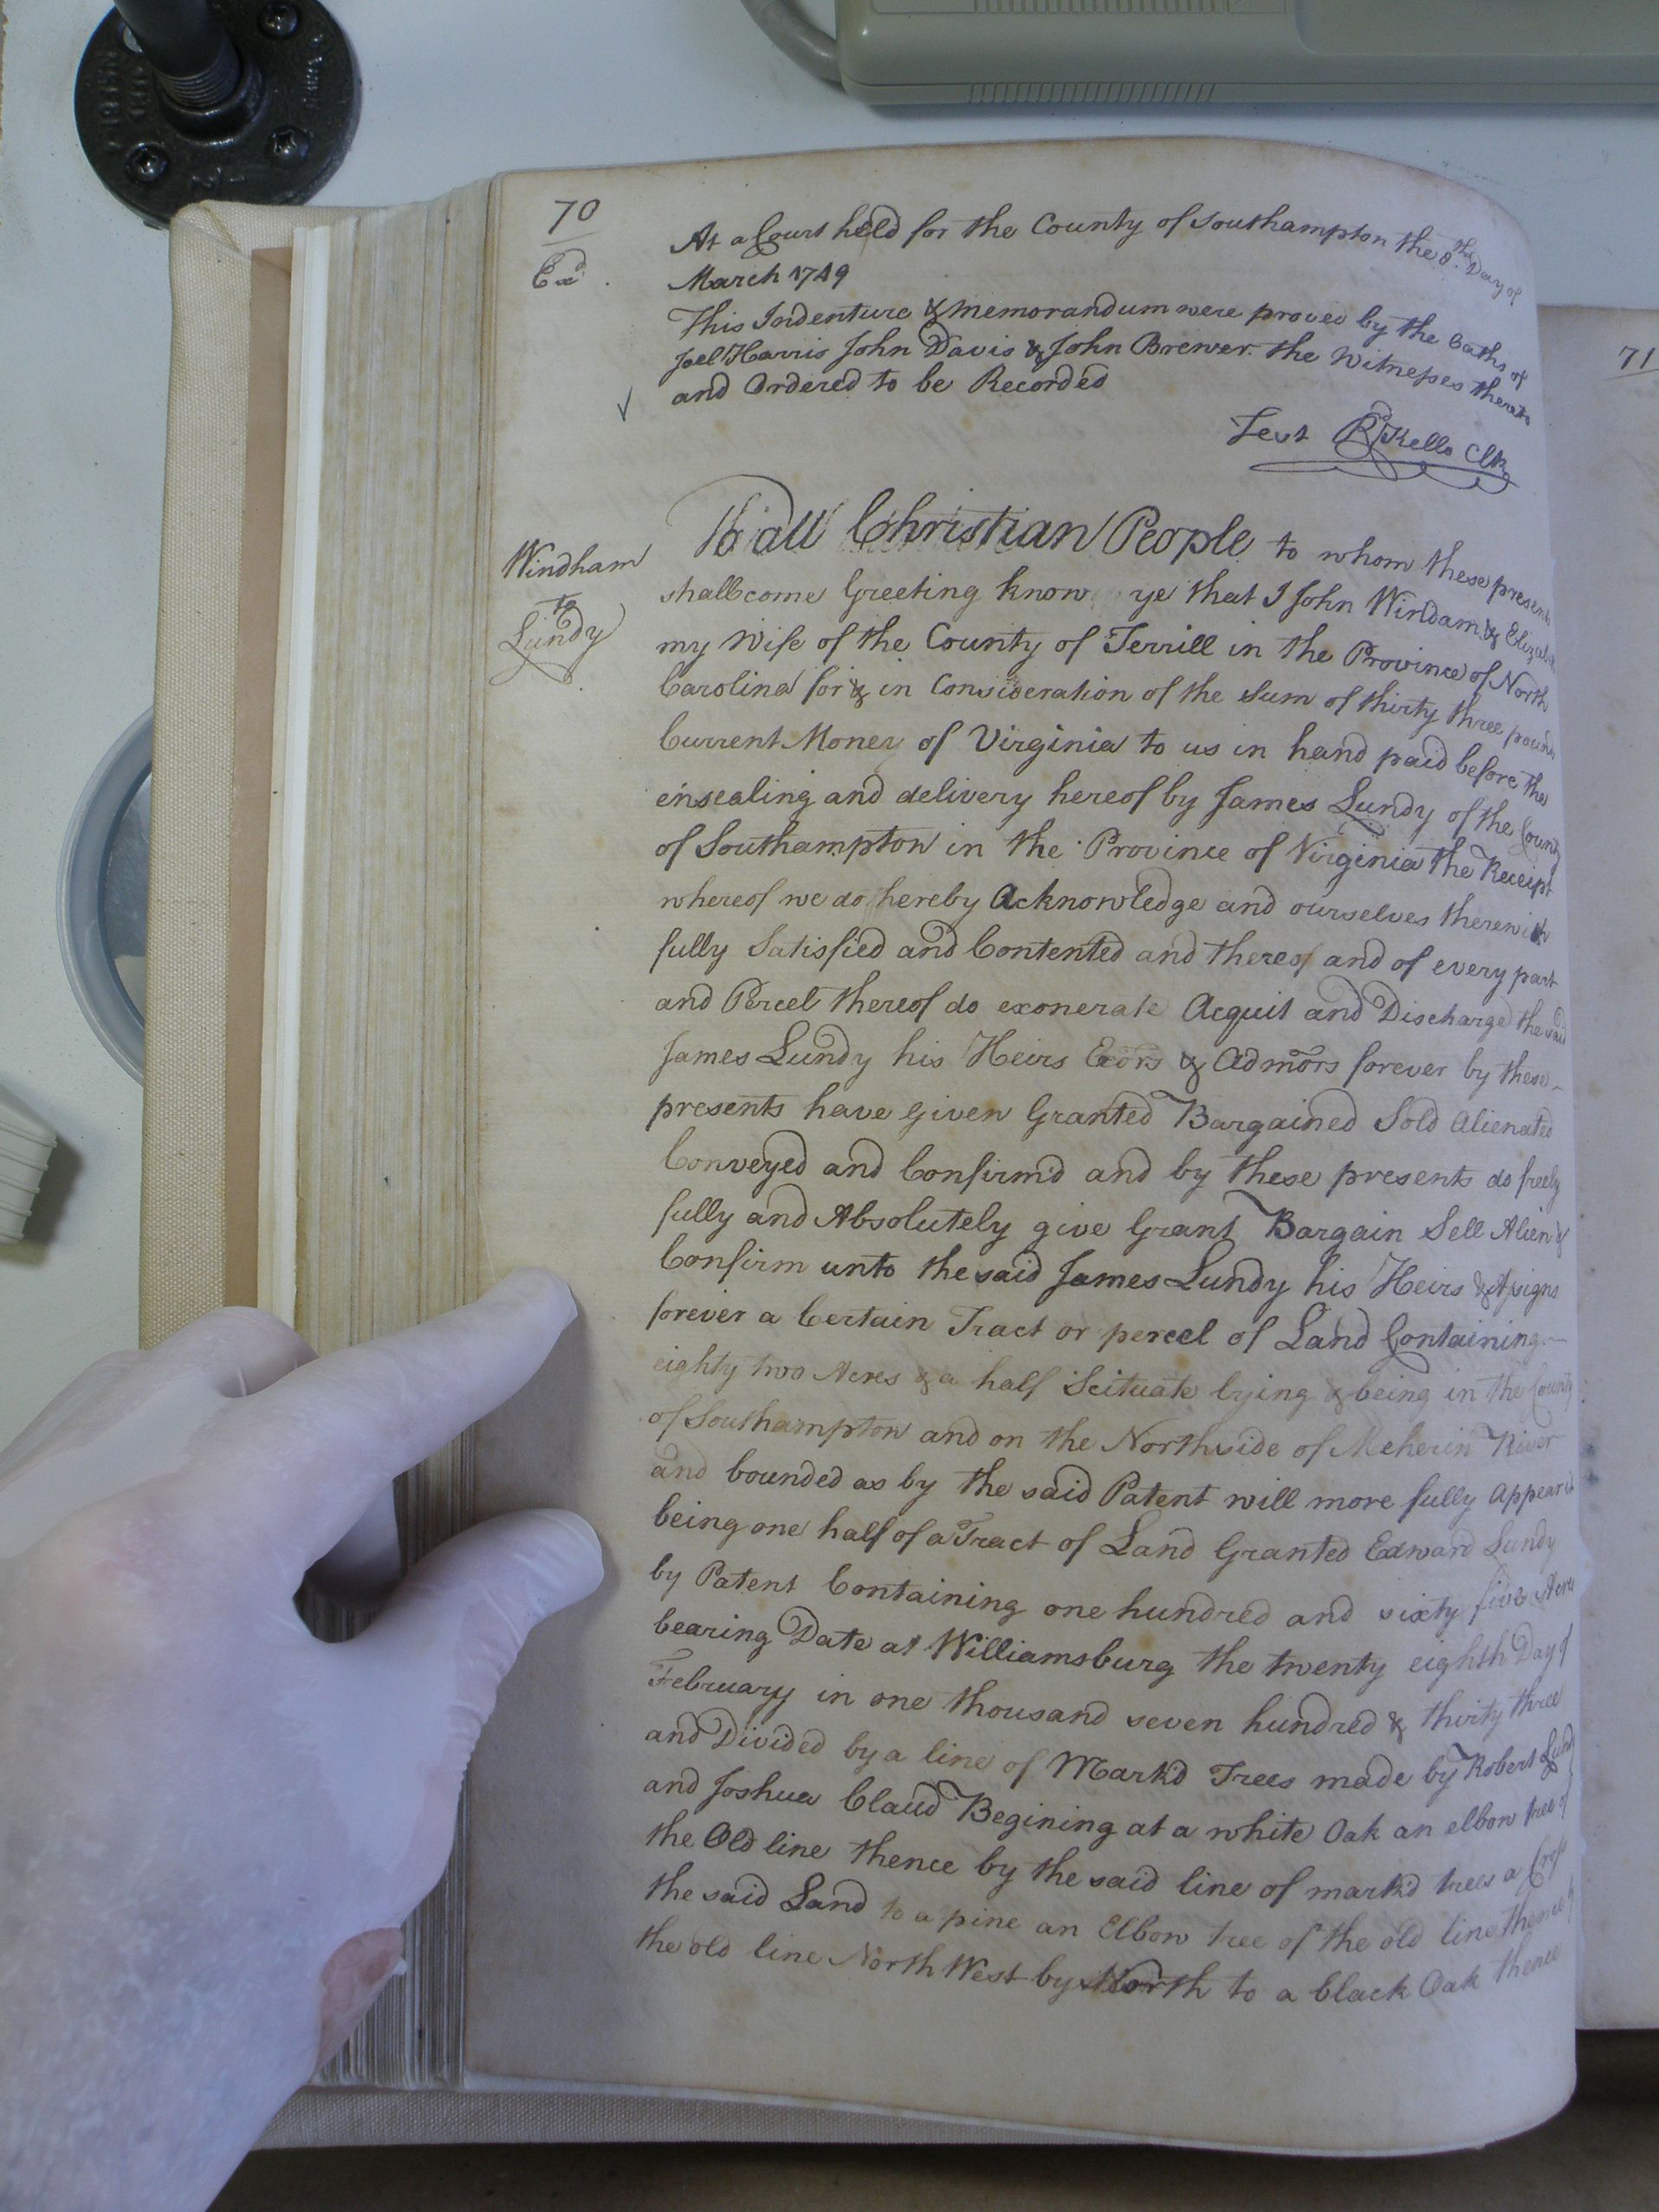 70
Ex.d
At a Court held for the County of Southampton the 8.th Day of
March 1749
This Indenture & Memorandum were proved by the Oaths of
Joel Harris John Davis & John Brewer the Witnesses thereto
and Ordered to be Recorded
Test R.d Kello Clk
71
Windham
to
Lundy
To all Christian People to whom these presents
shall come Greeting know ye that I John Windam & Elizabeth
my Wife of the County of Terrill in the Province of North
Carolina for & in Consideration of the Sum of thirty three pounds
Current Money of Virginia to us in hand paid before the
ensealing and delivery hereof by James Lundy of the County
of Southampton in the Province of Virginia the Receipt
whereof we do hereby Acknowledge and ourselves therewith
fully Satisfied and Contented and thereof and of every part
and Percel thereof do exonerate Acquit and Discharge the said
James Lundy his Heirs Exors & Admors forever by these
presents have Given Granted Bargained Sold Alienated
Conveyed and Confirm'd and by these presents do freely
fully and Absolutely give Grant Bargain Sell Alien &
Confirm unto the said James Lundy his Heirs & Assigns
forever a Certain Tract or percel of Land Containing
eighty two Acres & a half Scituate lying & being in the County
of Southampton and on the North side of Meherin River
and bounded as by the said Patent will more fully Appear it
being one half of a Tract of Land Granted Edward Lundy
by Patent Containing one hundred and sixty five Acres
bearing Date at Williamsburg the twenty eighth Day of
February in one thousand seven hundred & thirty three
and Divided by a line of Mark'd Trees made by Robert Lundy
and Joshua Claud Begining at a white Oak an elbow tree of
the Old line thence by the said line of mark'd trees a Cross
the said Land to a pine an Elbow tree of the old line thence by
the old line North West by North to a black Oak thence